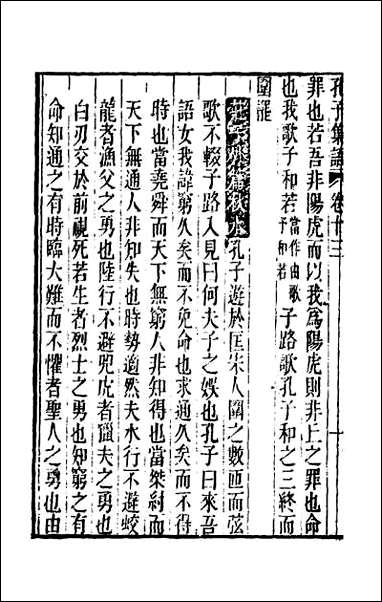 孔子集語 卷十三
罪也若吾非陽虎而以我爲陽虎則非上之罪也命
也我歌子和若當作由歌予和若子路歌孔子和之三終而
圍罷
莊子外篇秋水孔子遊於匡宋人圍之數匝而弦
歌不輟子路入見曰何夫子之娛也孔子曰來吾
語女我諱窮久矣而不免命也求通久矣而不得
時也當堯舜而天下無窮人非知得也當桀紂而
天下無通人非知失也時勢適然夫水行不避蛟
龍者漁父之勇也陸行不避兕虎者獵夫之勇也
白刃交於前視死若生者烈士之勇也知窮之有
命知通之有時臨大難而不懼者聖人之勇也由